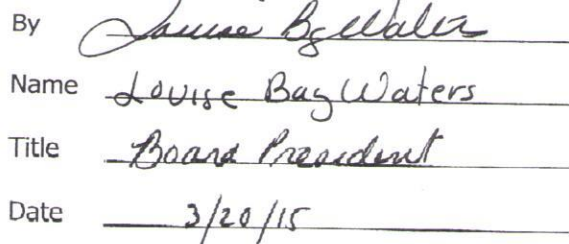 By Louise Bay Waters
Name Louise Bay Waters
Title Board President
Date 3/20/15